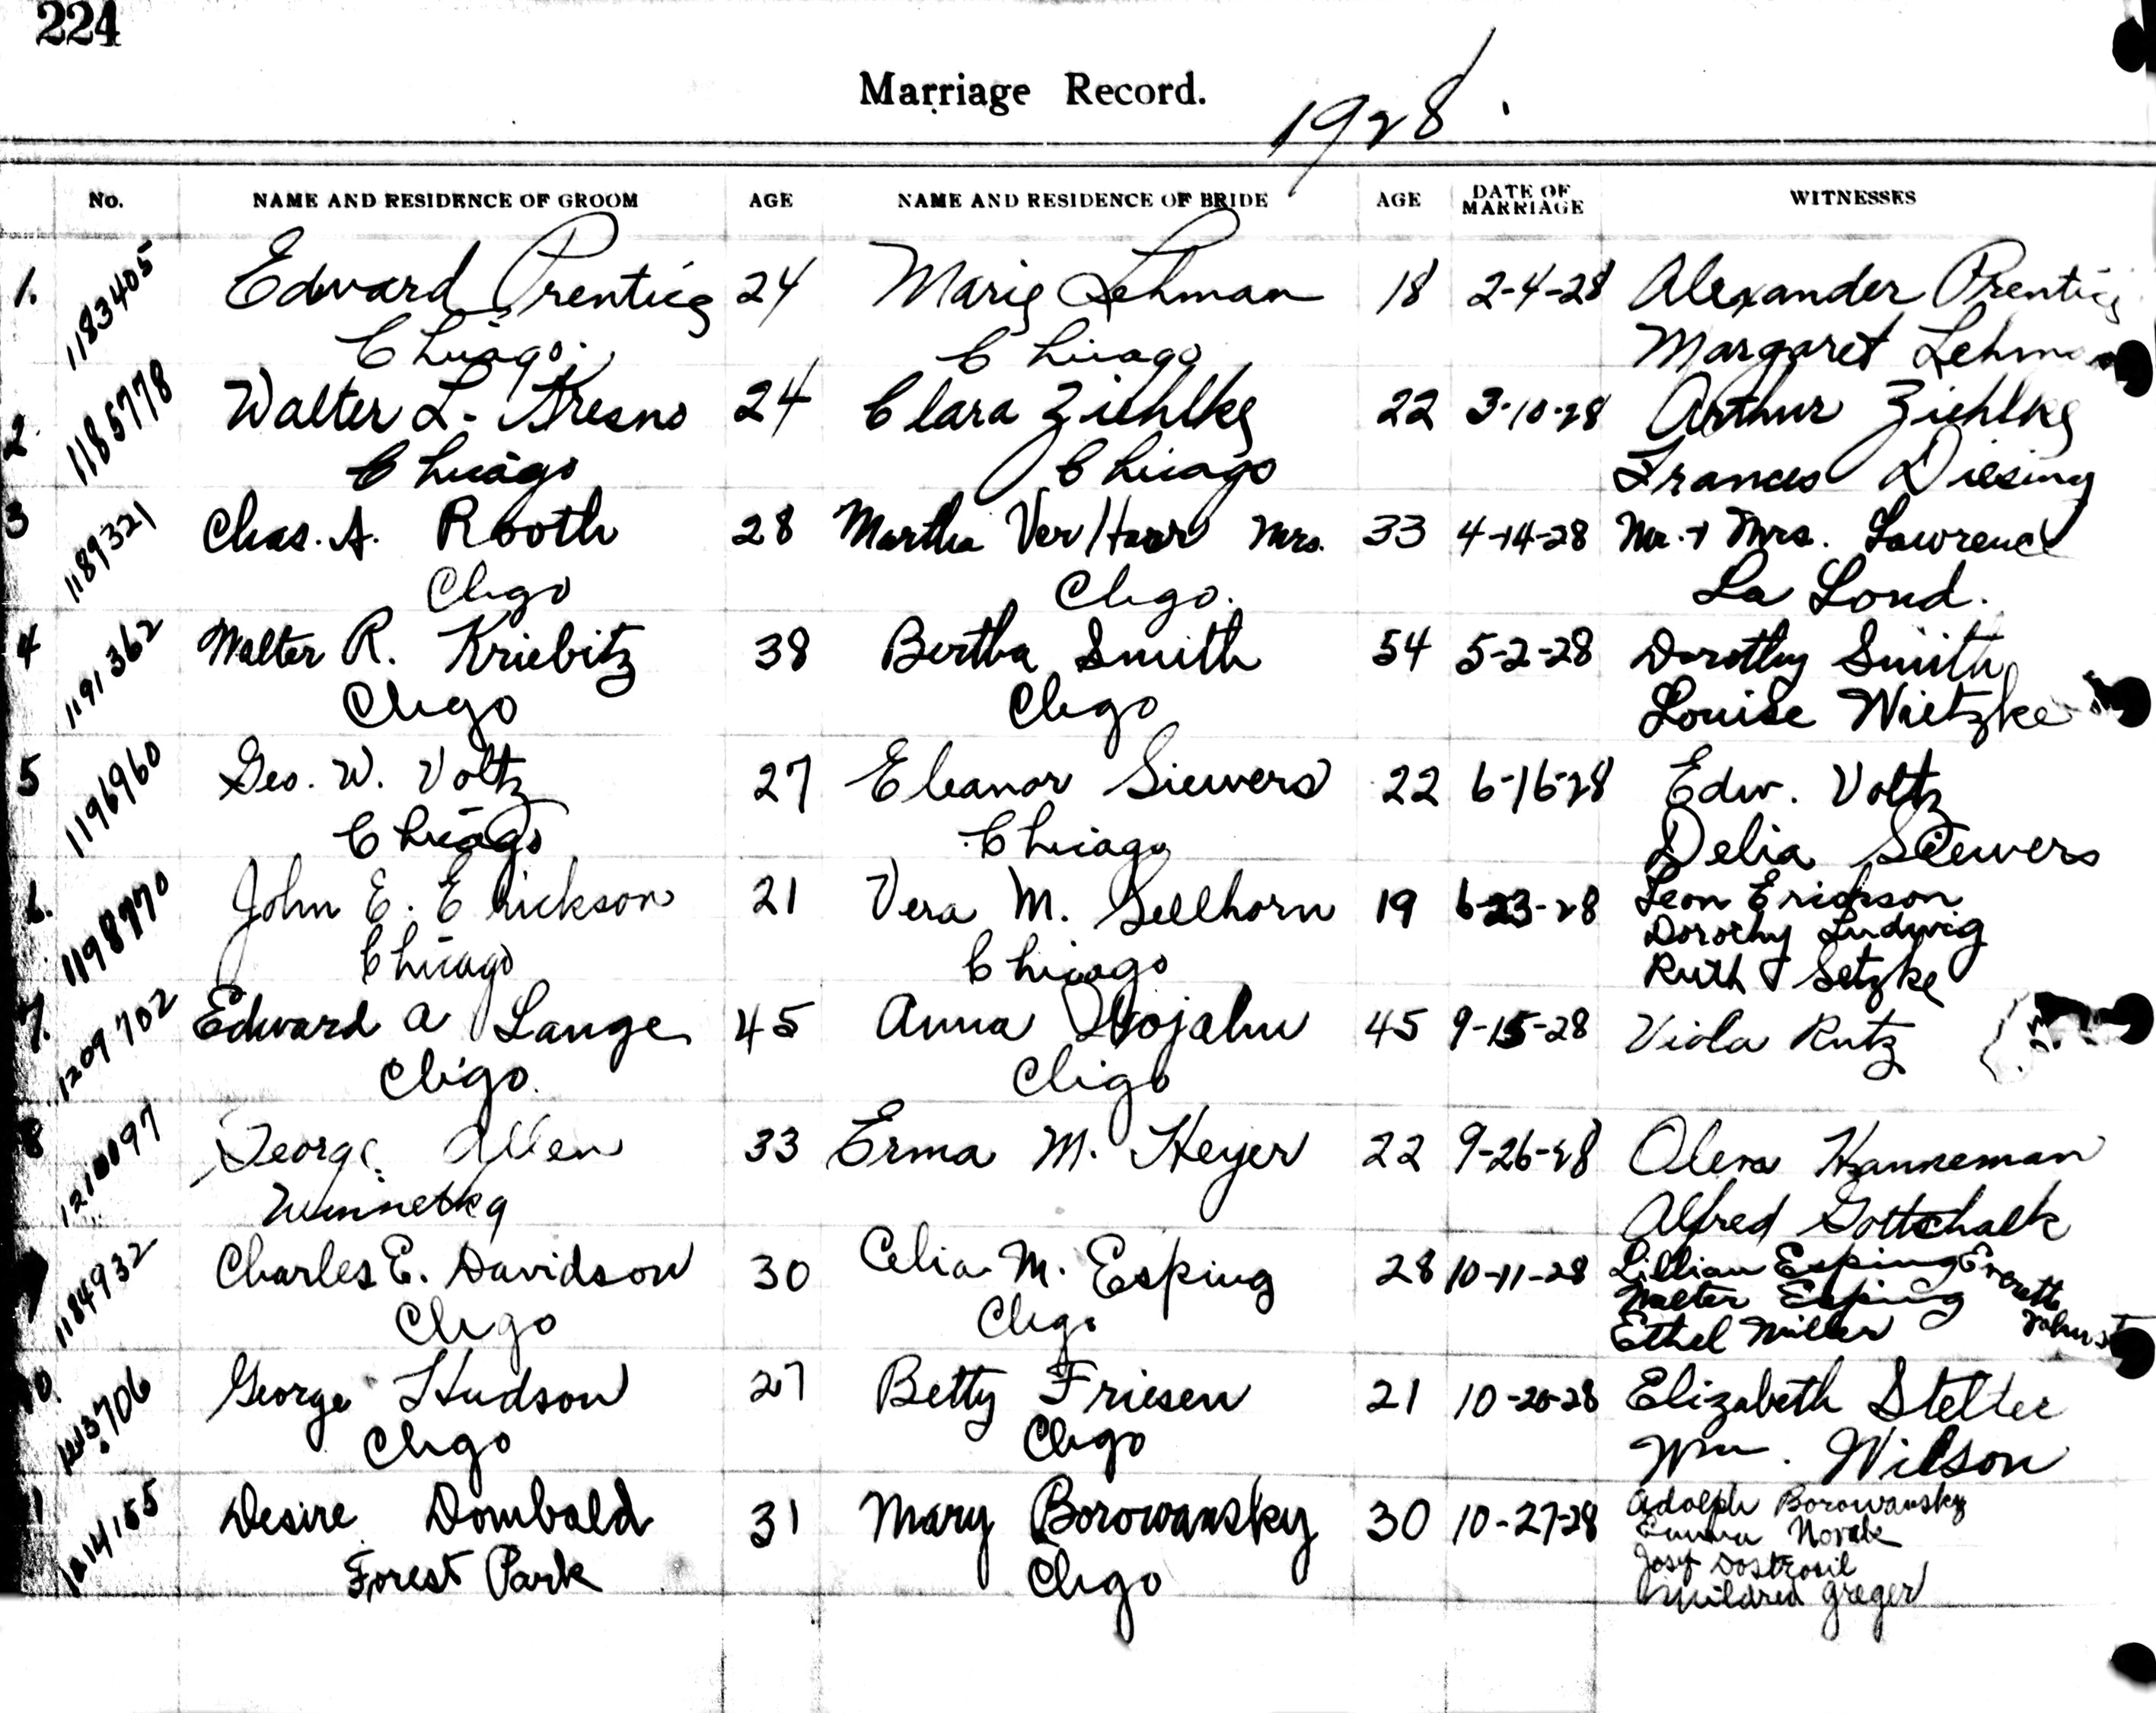 224
Marriage Record. 1928
No. NAME AND RESIDENCE OF GROOM AGE NAME AND RESIDENCE OF BRIDE AGE DATE OF MARRIAGE WITNESSES
1. 1183405 Edward Prentice 24 Marie Lehman 18 2-4-28 Alexander Prentice
Chicago. Chicago Margaret
2. 1185778 Walter L. 24 Clara Ziehlke 22 3-10-28 Arthur Ziehlke
Chicago Chicago Frances Diesing
3 1189321 Chas. A. Rooth 28 Martha Mrs. 33 4-14-28 Mr. + Mrs. Lawrence
Chgo Chgo. La Lond.
4 1191362 Walter R. Kriebitz 38 Bertha Smith 54 5-2-28 Dorothy Smith
Chgo Chgo Louise Wietzke
5 1196960 Geo. W. Voltz 27 Eleanor Siewers 22 6-16-28 Edw. Voltz
Chicago Chicago Delia Siewers
6. 1198970 John E. Erickson 21 Vera M. Gellhorn 19 6-23-28 Leon Erickson
Chicago Chicago Dorothy Ludwig
Ruth Setzke
7. 1209702 Edward A Lange 45 Anna Wojahn 45 9-15-28 Viola Rutz
Chgo. Chgo
8 1210097 George Allen 33 Erma M. Heyer 22 9-26-28 Hanneman
Winnetka Alfred Gottschalk
1184932 Charles E. Davidson 30 Celia M. Esping 28 10-11-28 Lillian Esping
Chgo Chgo Walter Esping
Ethel Miller
10. George Hudson 27 Betty Friesen 21 10-20-28 Elizabeth Stelter
Chgo Chgo Wm. Wilson
1214155 Desire Dombald 31 Mary Borowansky 30 10-27-28 Adolph Borowansky
Forest Park Chgo Emma Novak
Josef
Mildred Greger